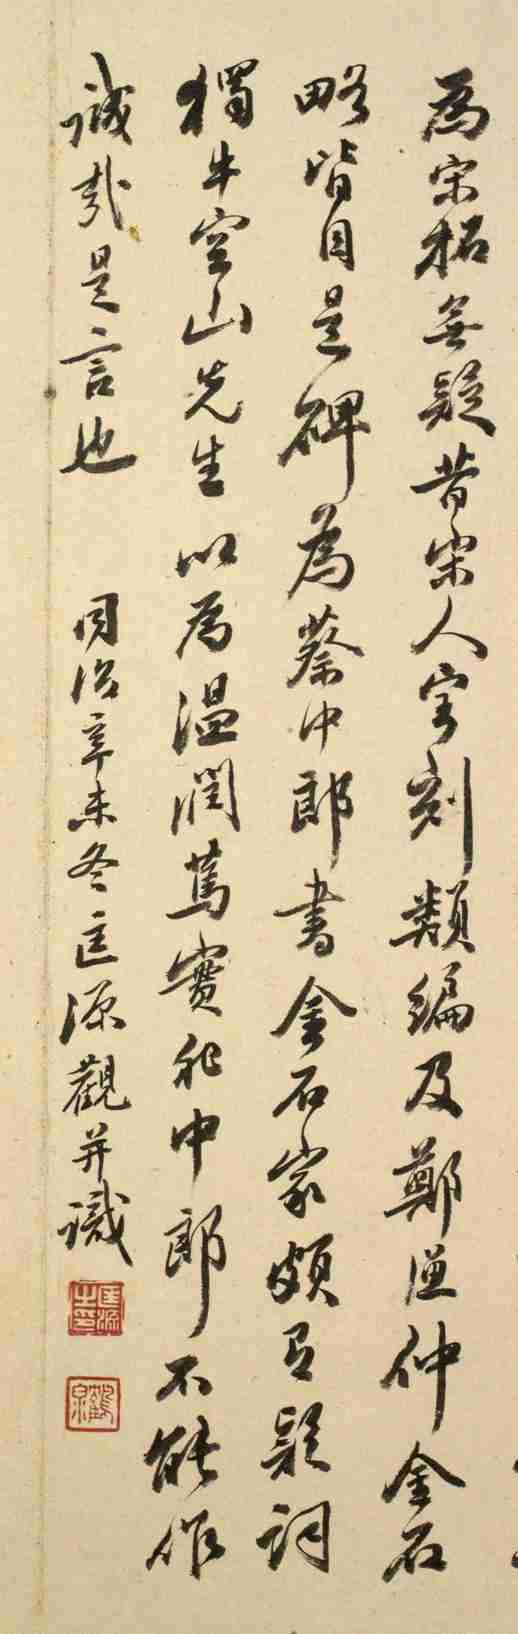 為宋拓無疑昔宋人寶刻類編及鄭漁仲金石
略皆目是碑為蔡中郎書金石家頗有疑詞
獨牛空山先生以為溫潤篤實非中郎不能作
誠哉是言也 同治辛未冬匡源觀并識
匡源之印
鶴泉